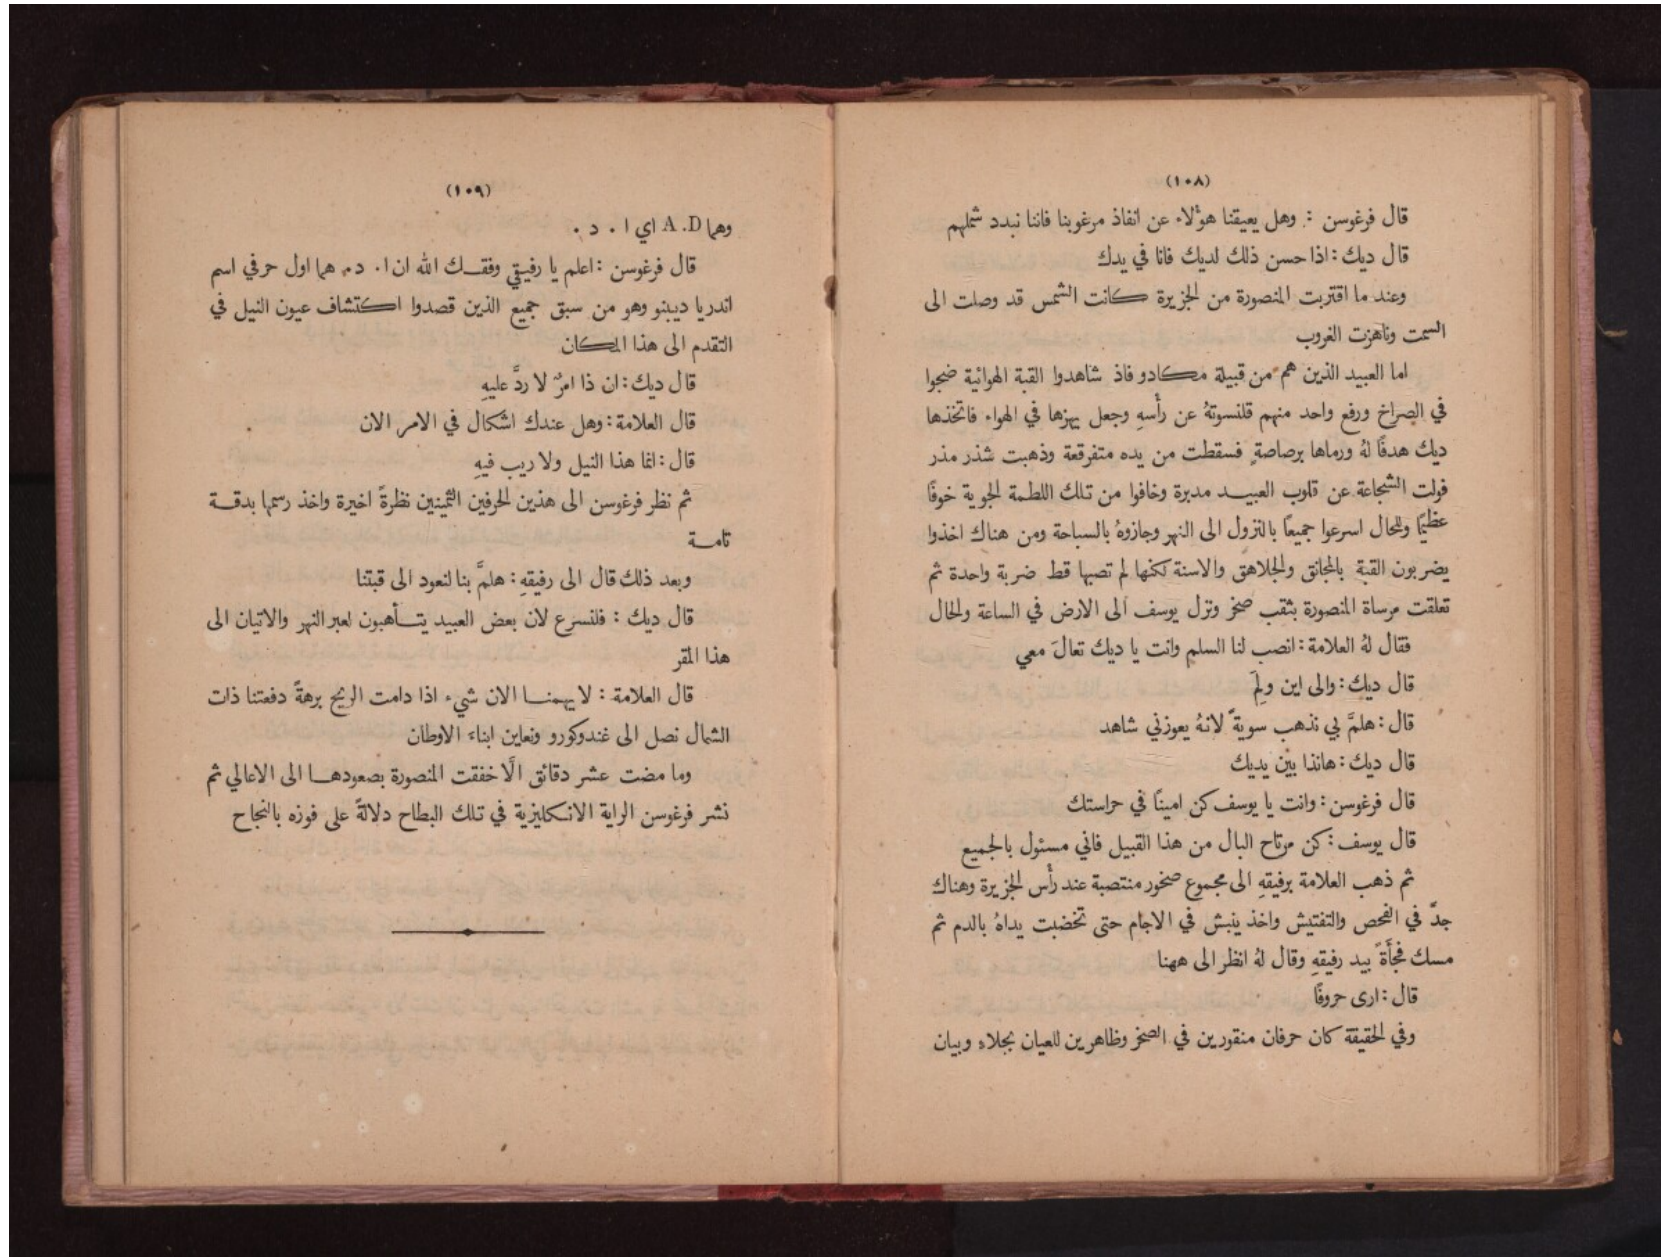 (١٠٨)
قال فرغوسن : وهل يعيقنا هؤلاء عن انفاذ مرغوبنا فاننا نبدد شملهم
قال ديك : اذا حسن ذلك لديك فانا في يدك
وعند ما اقتربت المنصورة من الجزيرة كانت الشمس قد وصلت الى
السمت وناهزت الغروب
اما العبيد الذين هم من قبيلة مكادو فاذ شاهدوا القبة الهوائية ضجوا
في الصراخ ورفع واحد منهم قلنسوتهُ عن رأسهِ وجعل يهزها في الهواء فاتخذها
ديك هدفًا لهُ ورماها برصاصةٍ فسقطت من يده متفرقعة وذهبت شذر مذر
فولت الشجاعة عن قلوب العبيد مدبرة وخافوا من تلك اللطمة الجوية خوفًا
عظيمًا وللحال اسرعوا جميعًا بالنزول الى النهر وجازوهُ بالسباحة ومن هناك اخذوا
يضربون القبة بالمجانق والجلاهق والاسنة لكنها لم تصبها قط ضربة واحدة ثم
تعلقت مرساة المنصورة بثقب صخر ونزل يوسف الى الارض في الساعة والحال
فقال لهُ العلامة : انصب لنا السلم وانت يا ديك تعالَ معي
قال ديك : والى اين ولِمَ
قال : هلمَّ بي نذهب سويةً لانهُ يعوزني شاهد
قال ديك : هانذا بين يديك
قال فرغوسن : وانت يا يوسف كن امينًا في حراستك
قال يوسف : كن مرتاح البال من هذا القبيل فاني مسئول بالجميع
ثم ذهب العلامة برفيقهِ الى مجموع صخور منتصبة عند رأس الجزيرة وهناك
جدَّ في الفحص والتفتيش واخذ ينبش في الاجام حتى تخضبت يداهُ بالدم ثم
مسك فجأةً بيد رفيقهِ وقال لهُ انظر الى ههنا
قال : ارى حروفًا
وفي الحقيقة كان حرفان منقورين في الصخر وظاهرين للعيان بجلاءِ وبيان
(١٠٩)
وهما A.D اي ا . د .
قال فرغوسن : اعلم يا رفيقي وفقك الله ان ا . د . هما اول حرفي اسم
اندريا ديبنو وهو من سبق جميع الذين قصدوا اكتشاف عيون النيل في
التقدم الى هذا المكان
قال ديك : ان ذا امرٌ لا ردَّ عليهِ
قال العلامة : وهل عندك اشكال في الامر الان
قال : انما هذا النيل ولا ريب فيهِ
ثم نظر فرغوسن الى هذين الحرفين الثمينين نظرةً اخيرة واخذ رسمها بدقة
تامة
وبعد ذلك قال الى رفيقهِ : هلمَّ بنا لنعود الى قبتنا
قال ديك : فلنسرع لان بعض العبيد يتأهبون لعبر النهر والاتيان الى
هذا المقر
قال العلامة : لا يهمنا الان شيء اذا دامت الريح برهةً دفعتنا ذات
الشمال نصل الى غندوكورو ونعاين ابناء الاوطان
وما مضت عشر دقائق الَّا خفقت المنصورة بصعودها الى الاعالي ثم
نشر فرغوسن الراية الانكليزية في تلك البطاح دلالةً على فوزه بالنجاح